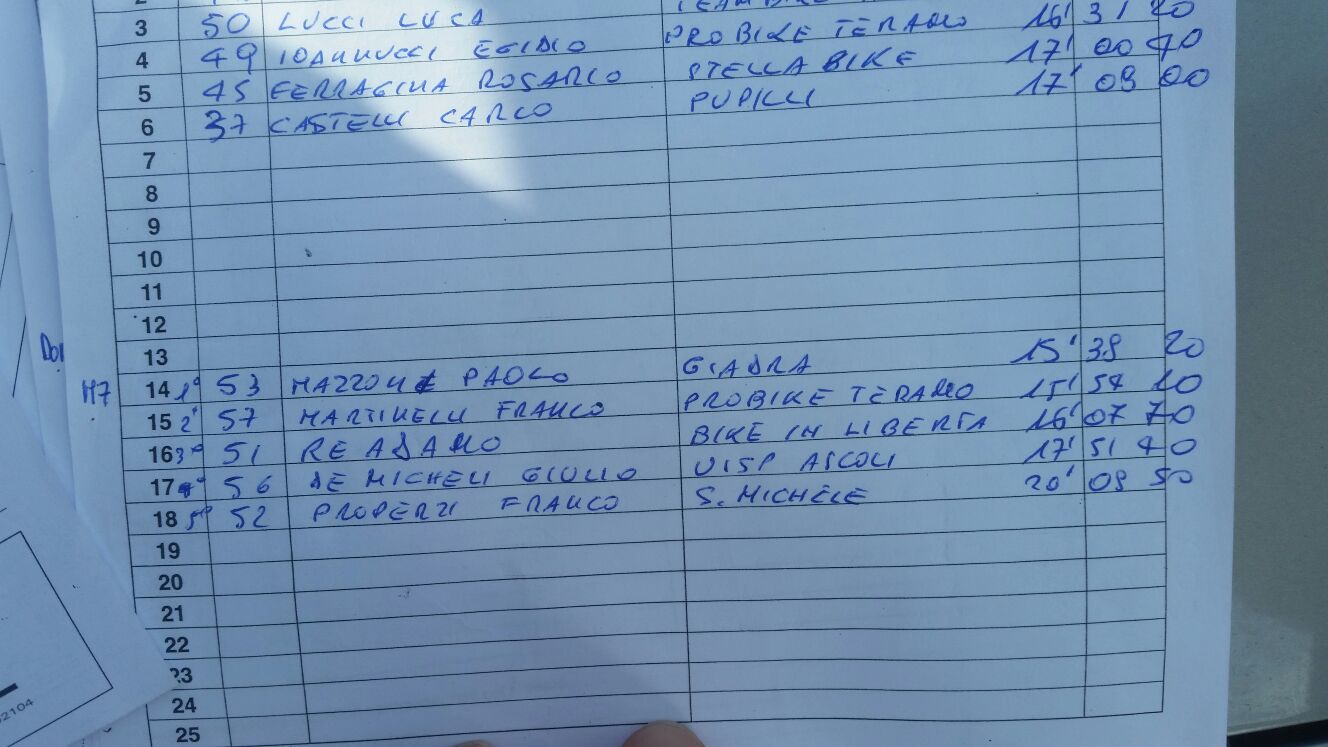 3 50 LUCCI LUCA PROBIKE TERAMO 16' 31 20
4 49 IOANNUCCI EGIDIO STELLA BIKE 17' 00 70
5 45 FERRAGINA ROSARIO PUPILLI 17' 09 00
6 37 CASTELLI CARLO
7
8
9
10
11
12
13
M7 14 1° 53 MAZZONI PAOLO GIADRA 15' 38 20
15 2° 57 MARTINELLI FRANCO PROBIKE TERAMO 15' 54 10
16 3° 51 RE ADAMO BIKE IN LIBERTA 16' 07 70
17 4° 56 DE MICHELI GIULIO UISP ASCOLI 17' 51 40
18 5° 52 PROPERZI FRANCO S. MICHELE 20' 09 50
19
20
21
22
23
24
25